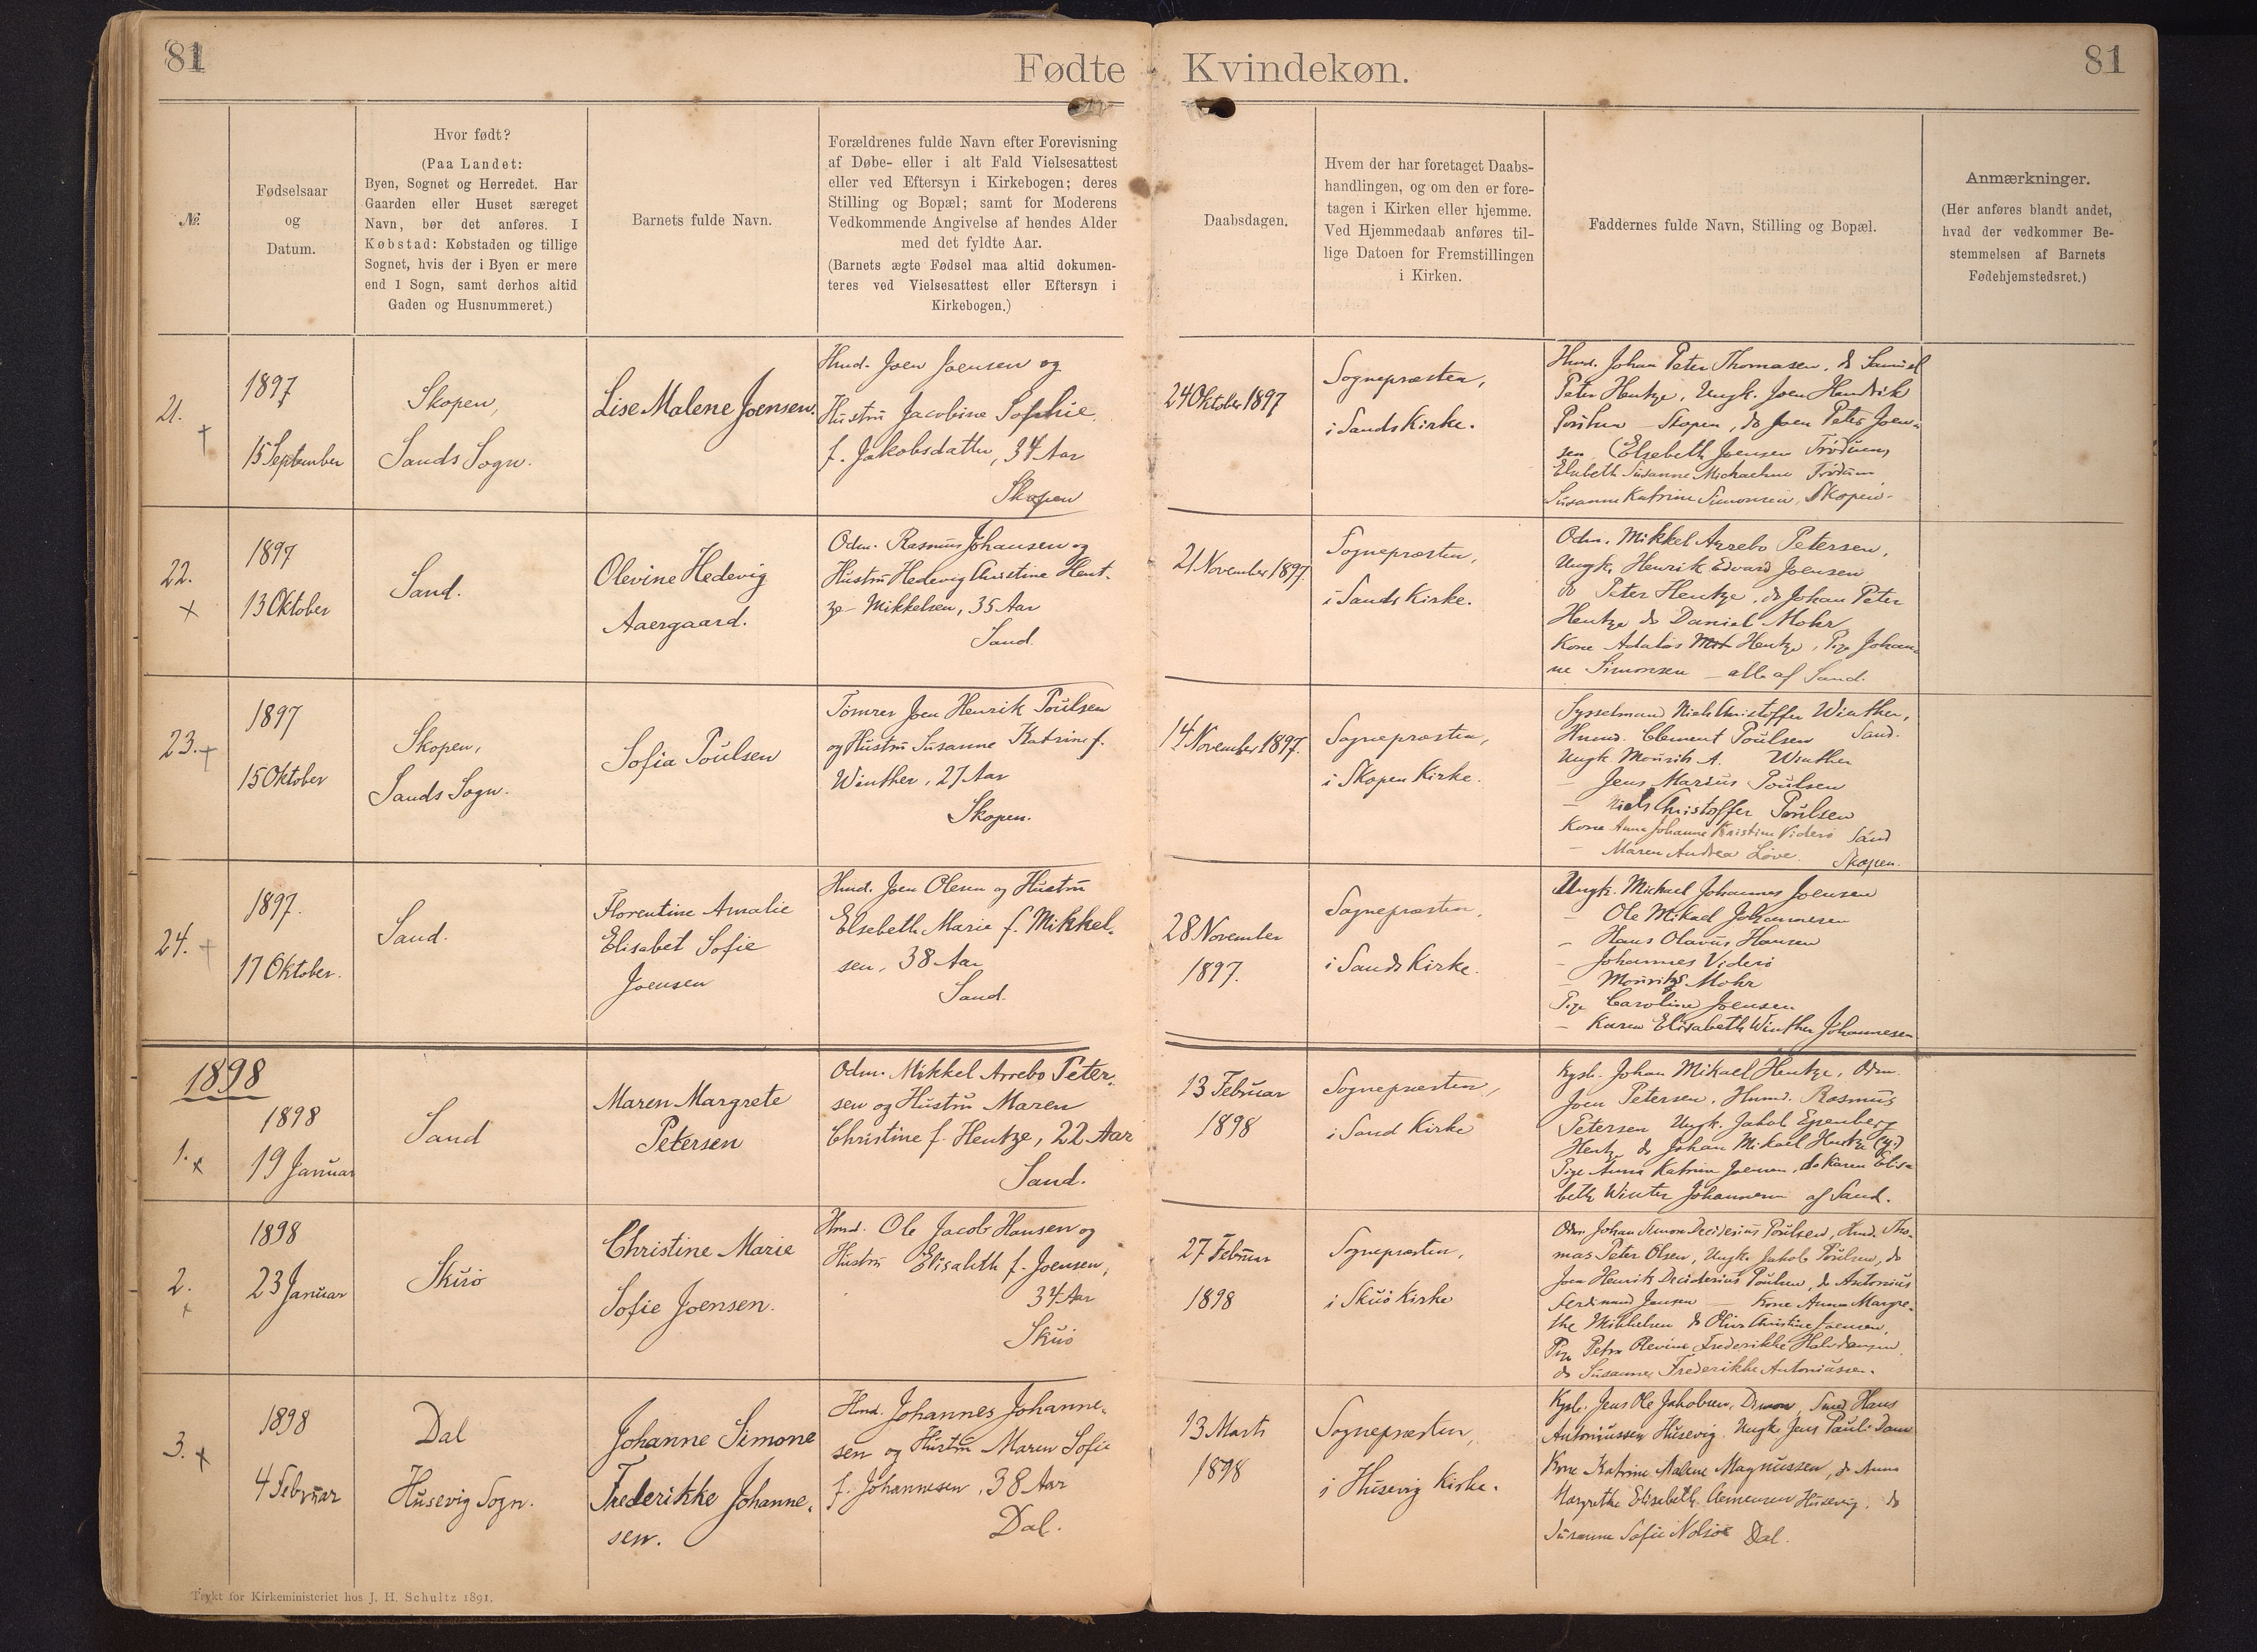 81
Fødte
Kvindekøn.
81
Nr.
Fødselsaar
og
Datum.
Hvor født?
(Paa Landet:
Byen, Sognet og Herredet. Har
Gaarden eller Huset særeget
Navn, bør det anføres. I
Købstad: Købstaden og tillige
Sognet, hvis der i Byen er mere
end 1 Sogn, samt derhos altid
Gaden og Husnummeret.)
Barnets fulde Navn.
Forældrenes fulde Navn efter Forevisning
af Døbe- eller i alt Fald Vielsesattest
eller ved Eftersyn i Kirkebogen; deres
Stilling og Bopæl; samt for Moderens
Vedkommende Angivelse af hendes Alder
med det fyldte Aar.
(Barnets ægte Fødsel maa altid dokumen-
teres ved Vielsesattest eller Eftersyn i
Kirkebogen.)
Daabsdagen.
Hvem der har foretaget Daabs-
handlingen, og om den er fore-
tagen i Kirken eller hjemme.
Ved Hjemmedaab anføres til-
lige Datoen for Fremstillingen
i Kirken.
Faddernes fulde Navn, Stilling og Bopæl.
Anmærkninger.
(Her anføres blandt andet,
hvad der vedkommer Be-
stemmelsen af Barnets
Fødehjemstedsret.)
21.
1897
15 September
Skopen,
Sands Sogn.
Lise Malene Joensen.
Hmd. Joen Joensen og
Hustru Jacobine Sophie
f. Jakobsdatter, 34 Aar
Skopen
24 Oktober 1897
Sognepræsten,
i Sands Kirke.
Hmd. Johan Peter Thomasen, do Samuel
Peter Hentze, Ungk. Joen Hendrik
Poulsen - Skopen, do Joen Peter Joen-
sen Elsebeth Joensen Trødum,
Elsebeth Susanne Michaelsen Trødum
Susanne Katrine Simonsen, Skopen.
22.
1897
13 Oktober
Sand.
Olevine Hedevig
Aaergaard.
Odm. Rasmus Johansen og
Hustru Hedevig Christine Hent-
ze - Mikkelsen, 35 Aar
Sand.
21 November 1897.
Sognepræsten,
i Sands Kirke.
Odm. Mikkel Arrebo Petersen,
Ungk. Henrik Edvard Joensen
do Peter Hentze, do Johan Peter
Hentze do Daniel Mohr
Kone Hentze, Pige Johan-
ne Simonsen - alle af Sand.
23.
1897
15 Oktober
Skopen,
Sands Sogn.
Sofia Poulsen
Tømrer Joen Henrik Poulsen
og Hustru Susanne Katrine f.
Winther, 27 Aar
Skopen.
14 November 1897.
Sognepræsten,
i Skopen Kirke.
Sysselmand Niels Christoffer Winther,
Hmd. Clement Poulsen Sand.
Ungk. Mourits A. Winther
- Jens Marius Poulsen
- Niels Christoffer Poulsen
Kone Anna Johanne Kristine Viderø Sand
- Maren Andrea Løve. Skopen.
24.
1897.
17 Oktober.
Sand.
Florentine Amalie
Elisabet Sofie
Joensen
Hmd. Joen Olesen og Hustru
Elsebeth Marie f. Mikkel-
sen, 38 Aar
Sand.
28 November
1897.
Sognepræsten,
i Sands Kirke.
Ungk. Michael Johannes Joensen
- Ole Mikael Johannesen
- Hans Olavus Hansen
- Johannes Viderø
- Mourits Mohr
Pige Caroline Joensen
- Karen Elisabeth Winther Johannesen
1898
1.
1898
19 Januar
Sand
Maren Margrete
Petersen
Odm. Mikkel Arrebo Peter-
sen og Hustru Maren
Christine f. Hentze, 22 Aar
Sand.
13 Februar
1898
Sognepræsten,
i Sand Kirke
Kgsb. Johan Mikael Hentze, Odm.
Joen Petersen, Hmd. Rasmus
Petersen Ungk. Jakob Egenberg
Hentze do Johan Mikael Hentze (yi)
Pige Anna Katrine Joensen, do Karen Elisa-
beth Winter Johannesen af Sand.
2.
1898
23 Januar
Skuø
Christine Marie
Sofie Joensen.
Hmd. Ole Jacob Hansen og
Hustru Elisabeth f. Joensen,
34 Aar
Skuø
27 Februar
1898
Sognepræsten,
i Skuø Kirke
Odm. Johan Simon Deciderius Poulsen, Hmd. Tho-
mas Peter Olsen, Ungk. Jakob Poulsen, do
Joen Henrik Deciderius Poulsen, do Antonius
Ferdinand Jensen - Kone Anna Margre-
the Mikkelsen do Olive Christine Joensen,
Pige Petra Olevine Frederikke
do Susanne Frederikke Antoniussen.
3.
1898
4 Februar
Dal
Husevig Sogn.
Johanne Simone
Frederikke Johanne-
sen.
Hmd. Johannes Johanne-
sen og Hustru Maren Sofie
f. Johannesen, 38 Aar
Dal.
13 Marts
1898
Sognepræsten,
i Husevig Kirke.
Kgsb. Jens Ole Jakobsen, Dimon, Hans
Antoniussen Husevig. Ungk. Jens Pauli Dam
Kone Katrine Malene Magnussen, do Anna
Margrethe Elisabeth Clemensen Husevig, do
Susanne Sofie Nolsøe Dal.
Trykt for Kirkeministeriet hos J. H. Schultz 1891.